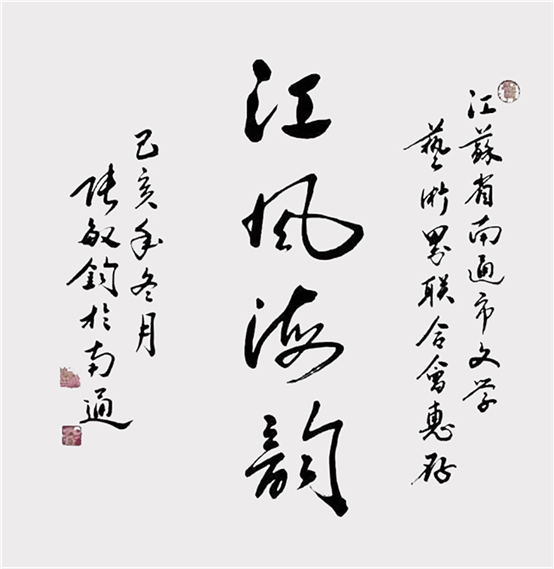 江蘇省南通市文学
藝術界联合會惠存
江风海韵
己亥年冬月
张敏鈞於南通